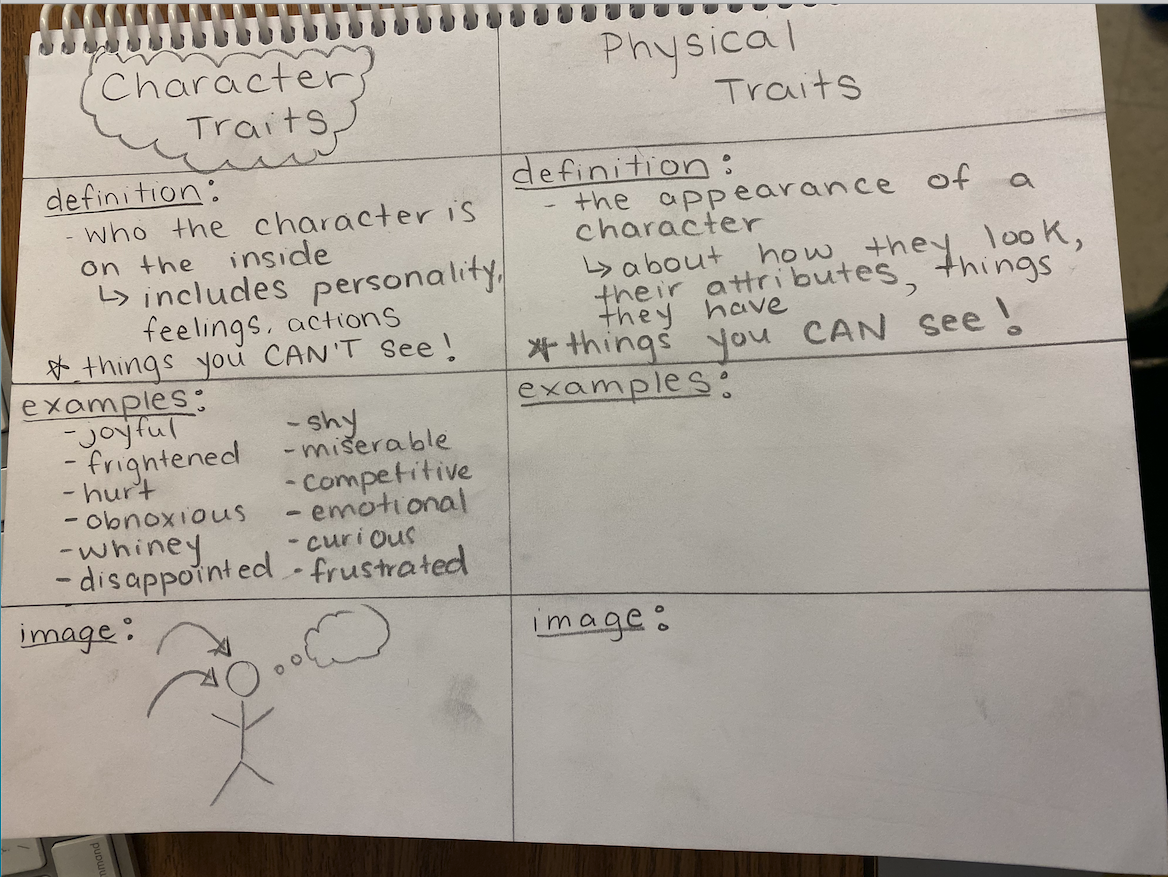 Character
Traits
definition:
- who the character is
on the inside
↳ includes personality,
feelings, actions
* things you CAN'T see!
examples:
- joyful
- frightened
- hurt
- obnoxious
- whiney
- disappointed
- shy
- miserable
- competitive
- emotional
- curious
- frustrated
image:
Physical
Traits
definition:
- the appearance of a
character
↳ about how they look,
their attributes, things
they have
* things you CAN see!
examples:
image: